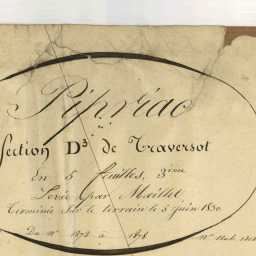 Pipriac
Section D³ de Traversot
en 5 feuilles, 3ème
Levée par Maillet
Terminée Sur le terrain le 5 juin 1830
Du N° 1272 à